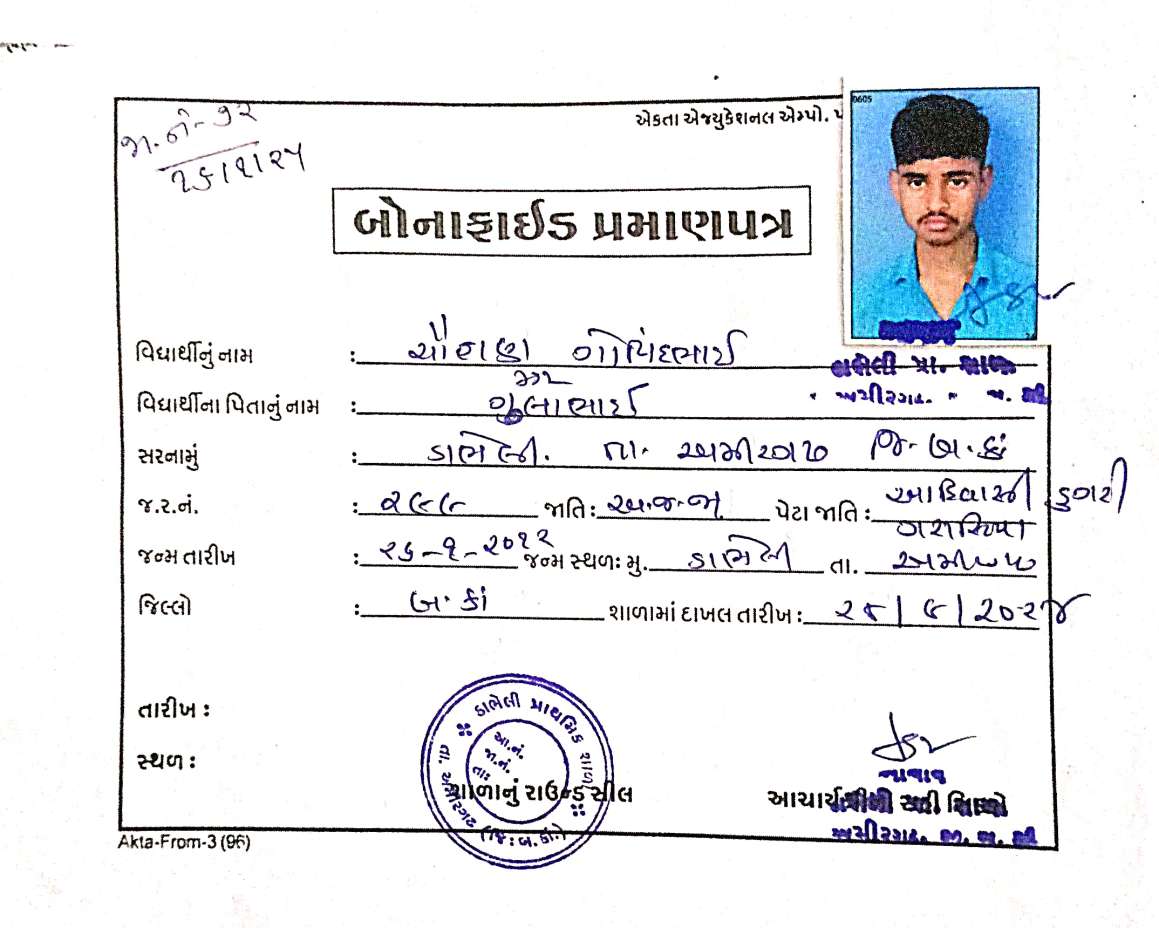 જા.નં-૭૨
૨૮/૧/૨૫
એકતા એજ્યુકેશનલ એમ્પો.
0605
બોનાફાઈડ પ્રમાણપત્ર
વિદ્યાર્થીનું નામ : ચૌહાણ ગોવિંદભાઈ
વિદ્યાર્થીના પિતાનું નામ : ગુલાભાઈ
પ્રા. શાળા
અમીરગઢ.
સરનામું : ડાભેલી. તા. અમીરગઢ જિ. બ.કાં
જ.ર.નં. : ૨૯૯ જાતિ : અ.જ.જા પેટા જાતિ : આદિવાસી ડુંગરી
ગરાસિયા
જન્મ તારીખ : ૨૬-૧-૨૦૧૨ જન્મ સ્થળઃ મુ. ડાભેલી તા. અમીરગઢ
જિલ્લો : બ.કાં શાળામાં દાખલ તારીખ :
તારીખ :
સ્થળ :
ડાભેલી પ્રાથમિક શાળા
તા. અમીરગઢ (જિ: બ.કાં.)
આ.નં.
જા.નં.
તાઃ
શાળાનું રાઉન્ડ સીલ
આચાર્ય
અમીરગઢ.
Akta-From-3 (96)